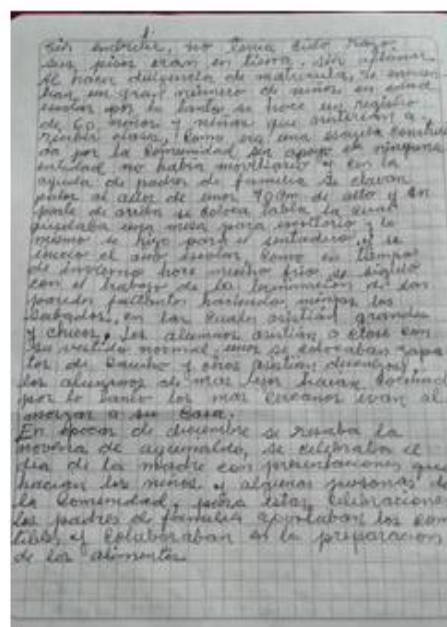 sin embutir, no tenia cielo razo
sus pisos eran en tierra, sin aplanar
Al hacer diligencia de matricula, se encuen
tran un gran número de niños en edad
escolar por lo tanto se hace un registro
de 60 niños y niñas que asistirian a
recibir clase. Como era una escuela construi
da por la Comunidad sin apoyo de ninguna
entidad no habia moviliario y con la
ayuda de padres de familia se clavan
palos al altor de unos 70cm de alto y en
parte de arriba se coloca tabla la cual
quedaba una mesa para escritorio y lo
mismo se hizo para el sentadero, y se
inicio el año escolar. Como en tiempos
de invierno hace mucho frio se siguio
con el trabajo de la terminación de las
paredes faltantes haciendo mingas los
Sabados, en las cuales asistian grandes
y chicos. Los alumnos asistian a clase con
su vestido normal, unos se colocaban zapa
tos de caucho y otros asistian descalzos,
los alumnos de mas lejos hacian
por lo tanto los mas cercanos ivan al
morzar a su Casa.
En épocas de diciembre se rezaba la
novena de aguinaldo, se celebraba el
dia de la madre con presentaciones que
hacian los niños y algunas personas de
la Comunidad, para estas celebraciones
los padres de familia aportaban los comes
tibles y colaboraban en la preparación
de los alimentos